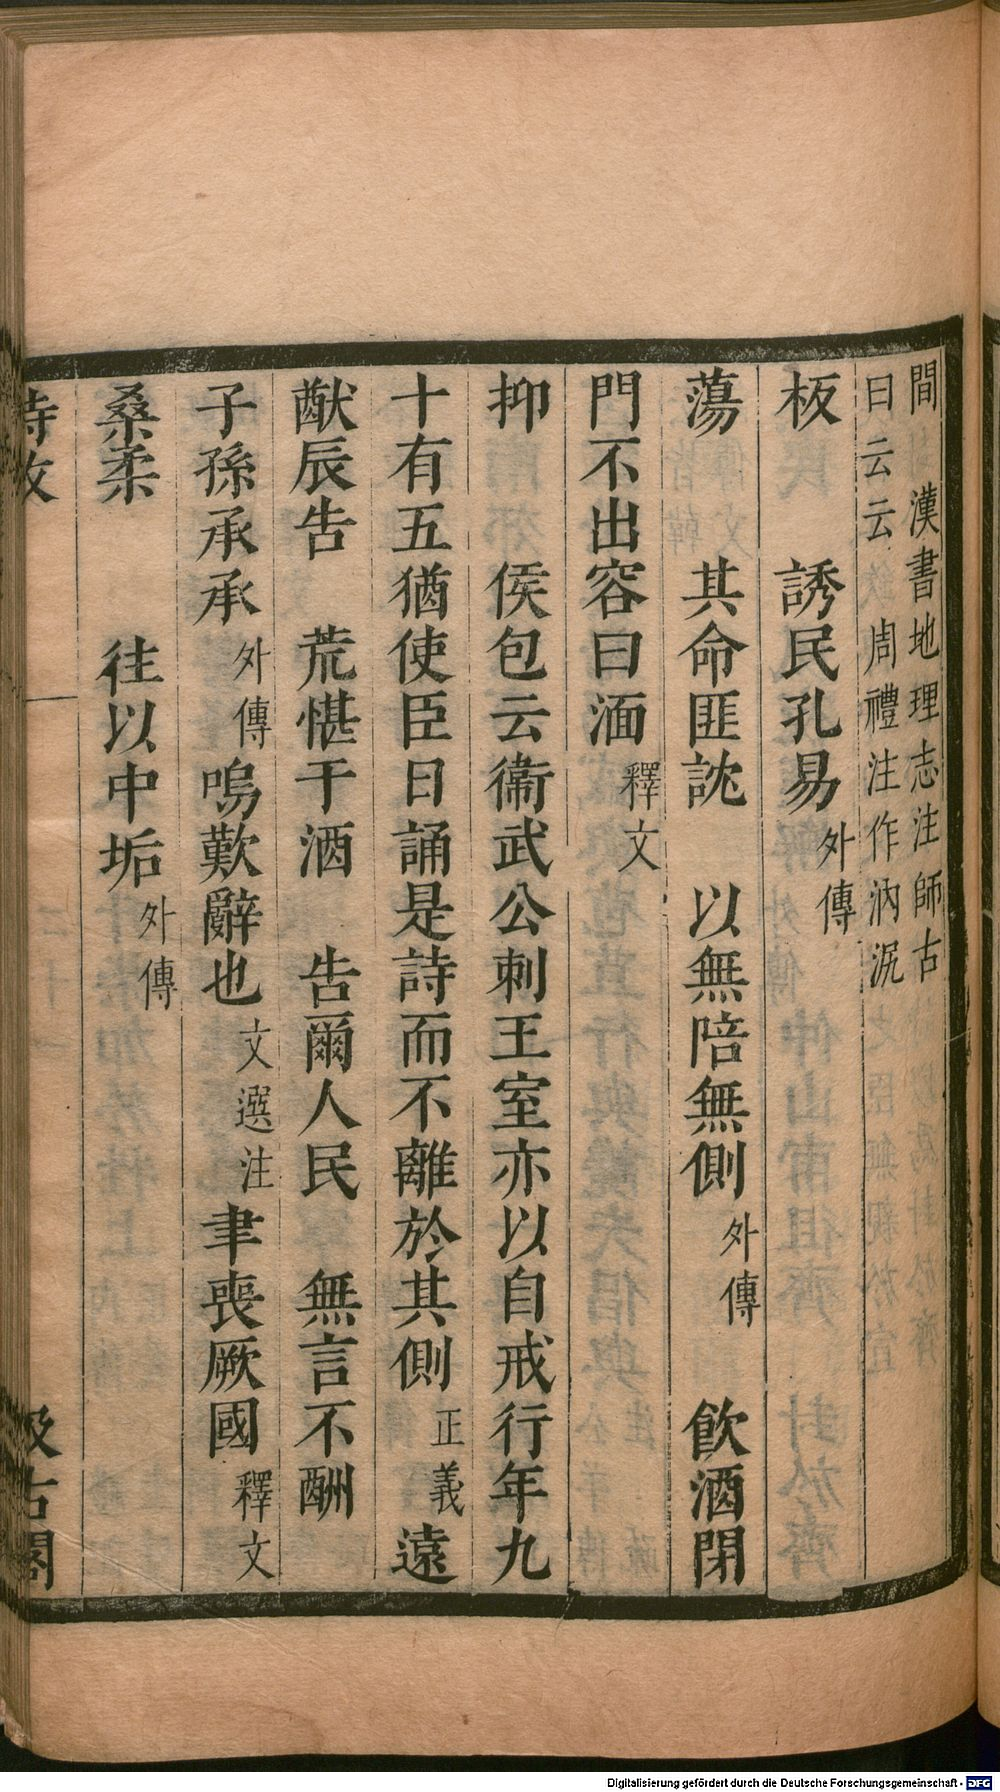 間　漢書地理志注師古
曰云云　周禮注作汭𣲖
板　誘民孔易外傳
蕩　其命匪訦　以無陪無側外傳　飲酒閉
門不出容曰湎釋文
抑　侯包云衞武公刺王室亦以自戒行年九
十有五猶使臣日誦是詩而不離於其側正義遠
猷辰告　荒愖于酒　告爾人民　無言不酬
子孫承承外傳嗚歎辭也文選注聿喪厥國釋文
桑柔　往以中垢外傳
詩攷　汲古閣
Digitalisierung gefördert durch die Deutsche Forschungsgemeinschaft - DFG